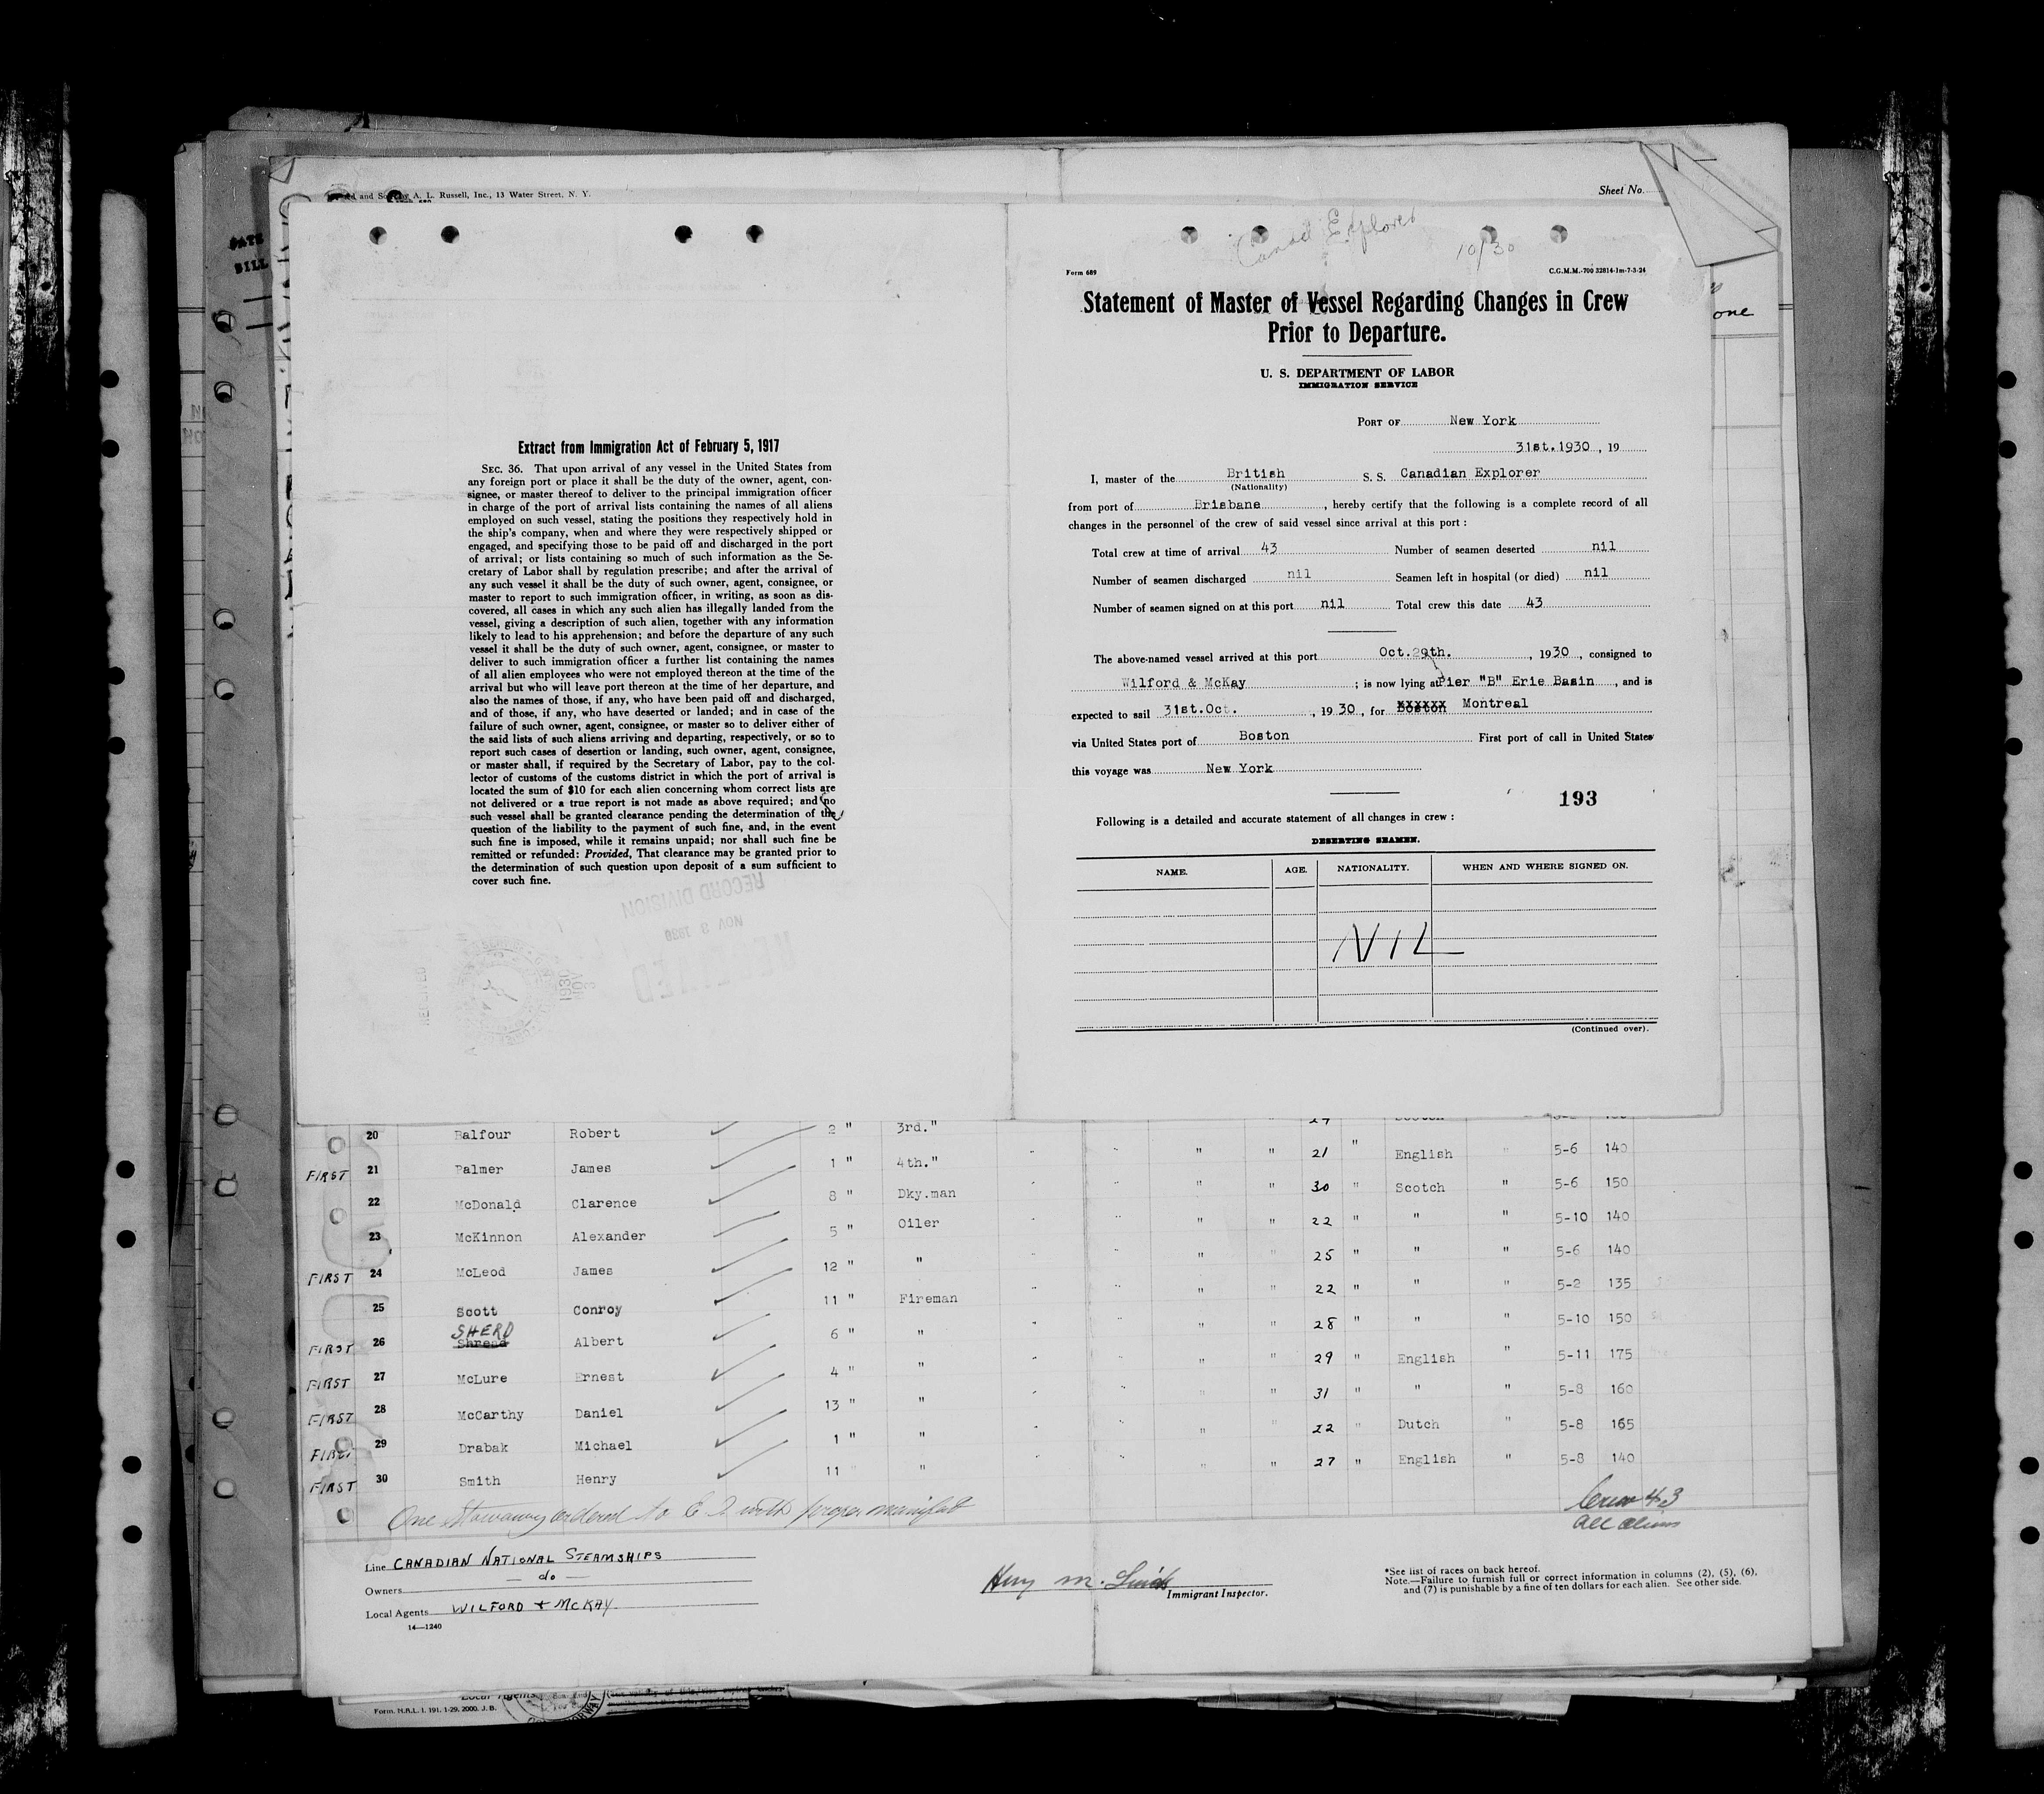 and Sold by A. L. Russell, Inc., 13 Water Street, N. Y.
Sheet No.
one
DATE
BILL
Extract from Immigration Act of February 5, 1917
SEC. 36. That upon arrival of any vessel in the United States from
any foreign port or place it shall be the duty of the owner, agent, con-
signee, or master thereof to deliver to the principal immigration officer
in charge of the port of arrival lists containing the names of all aliens
employed on such vessel, stating the positions they respectively hold in
the ship's company, when and where they were respectively shipped or
engaged, and specifying those to be paid off and discharged in the port
of arrival; or lists containing so much of such information as the Se-
cretary of Labor shall by regulation prescribe; and after the arrival of
any such vessel it shall be the duty of such owner, agent, consignee, or
master to report to such immigration officer, in writing, as soon as dis-
covered, all cases in which any such alien has illegally landed from the
vessel, giving a description of such alien, together with any information
likely to lead to his apprehension; and before the departure of any such
vessel it shall be the duty of such owner, agent, consignee, or master to
deliver to such immigration officer a further list containing the names
of all alien employees who were not employed thereon at the time of the
arrival but who will leave port thereon at the time of her departure, and
also the names of those, if any, who have been paid off and discharged,
and of those, if any, who have deserted or landed; and in case of the
failure of such owner, agent, consignee, or master so to deliver either of
the said lists of such aliens arriving and departing, respectively, or so to
report such cases of desertion or landing, such owner, agent, consignee,
or master shall, if required by the Secretary of Labor, pay to the col-
lector of customs of the customs district in which the port of arrival is
located the sum of $10 for each alien concerning whom correct lists are
not delivered or a true report is not made as above required; and no
such vessel shall be granted clearance pending the determination of the
question of the liability to the payment of such fine, and, in the event
such fine is imposed, while it remains unpaid; nor shall such fine be
remitted or refunded: Provided, That clearance may be granted prior to
the determination of such question upon deposit of a sum sufficient to
cover such fine.
RECORD DIVISION
NOV 3 1930
RECEIVED
Canad Explorer
10/30
Form 689 C.G.M.M.-700 32814-1m-7-3-24
Statement of Master of Vessel Regarding Changes in Crew
Prior to Departure.
U. S. DEPARTMENT OF LABOR
IMMIGRATION SERVICE
PORT OF New York
31st.1930, 19
I, master of the British S. S. Canadian Explorer
(Nationality)
from port of Brisbane, hereby certify that the following is a complete record of all
changes in the personnel of the crew of said vessel since arrival at this port :
Total crew at time of arrival 43 Number of seamen deserted nil
Number of seamen discharged nil Seamen left in hospital (or died) nil
Number of seamen signed on at this port nil Total crew this date 43
The above-named vessel arrived at this port Oct.29th., 1930, consigned to
Wilford & McKay ; is now lying at Pier "B" Erie Basin, and is
expected to sail 31st.Oct., 1930, for Boston Montreal
via United States port of Boston First port of call in United States
this voyage was New York
193
Following is a detailed and accurate statement of all changes in crew :
DESERTING SEAMEN.
NAME. AGE. NATIONALITY. WHEN AND WHERE SIGNED ON.
NIL
(Continued over).
20 Balfour Robert 2 " 3rd." " " 21 " English " 5-6 140
FIRST 21 Palmer James 1 " 4th." " " 30 " Scotch " 5-6 150
22 McDonald Clarence 8 " Dky.man " " 22 " " " 5-10 140
23 McKinnon Alexander 5 " Oiler " " 25 " " " 5-6 140
FIRST 24 McLeod James 12 " " " " 22 " " " 5-2 135
25 Scott Conroy 11 " Fireman " " 28 " " " 5-10 150
SHERD
FIRST 26 Shread Albert 6 " " " " 29 " English " 5-11 175
FIRST 27 McLure Ernest 4 " " " " 31 " " " 5-8 160
FIRST 28 McCarthy Daniel 13 " " " " 22 " Dutch " 5-8 165
FIRST 29 Drabak Michael 1 " " " " 27 " English " 5-8 140
FIRST 30 Smith Henry 11 " "
One Stowaway ordered to E I with proper manifest
Crew 43
all aliens
Line CANADIAN NATIONAL STEAMSHIPS
Owners — do —
Local Agents WILFORD + McKAY
14—1240
Immigrant Inspector.
*See list of races on back hereof.
Note.—Failure to furnish full or correct information in columns (2), (5), (6),
and (7) is punishable by a fine of ten dollars for each alien. See other side.
Local Agents
Form. N.A.L. 1. 191. 1-29. 2000. J. B.